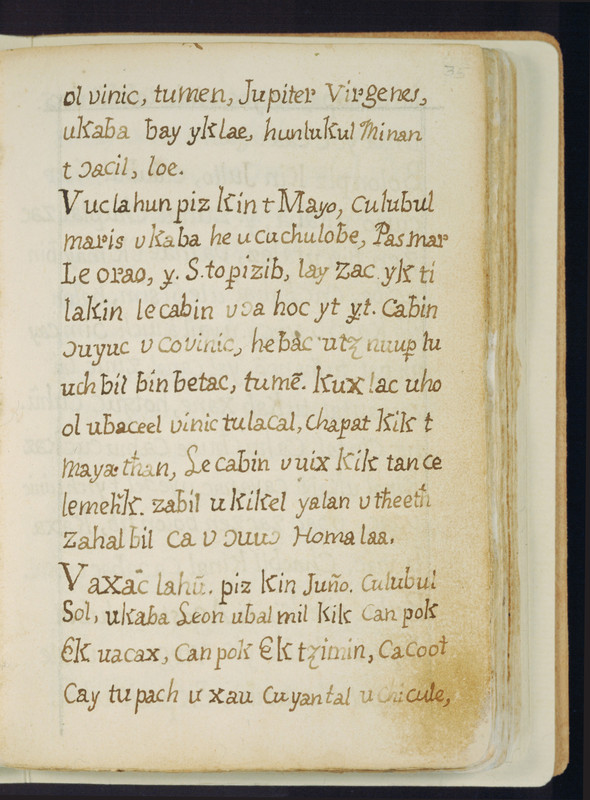 ol vinic, tumen, Jupiter Virgenes,
ukaba bay yklae, hunlukul Minan
t ɔacil, loe.
Vuclahun piz kin t Mayo, culubul
maris v kaba he u cuchulobe, Pasmar
Le orao, y. S.to pizib, lay zac yk ti
lakin le cabin v ɔa hoc yt yt. Cabin
ɔuyuc v co vinic, he bac utz nuup lu
uch bil bin betac, tumē. kux lac uho
ol ubaceel vinic tulacal, chapat kik t
maya than, Le cabin v uix kik tan ce
lemekk. zabil u kikel yalan v theeth
zahal bil ca v ɔuuɔ Homalaa.
Vaxac lahū. piz kin Juño. Culubul
Sol, ukaba Leon ubal mil kik Can pok
Ek uacax, Can pok Ek tzimin, Ca coot
Cay tu pach u xau Cuyantal u chicule,